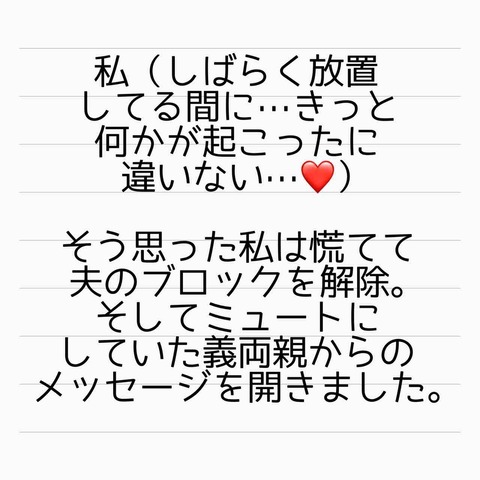 私（しばらく放置
してる間に…きっと
何かが起こったに
違いない…❤️）
そう思った私は慌てて
夫のブロックを解除。
そしてミュートに
していた義両親からの
メッセージを開きました。